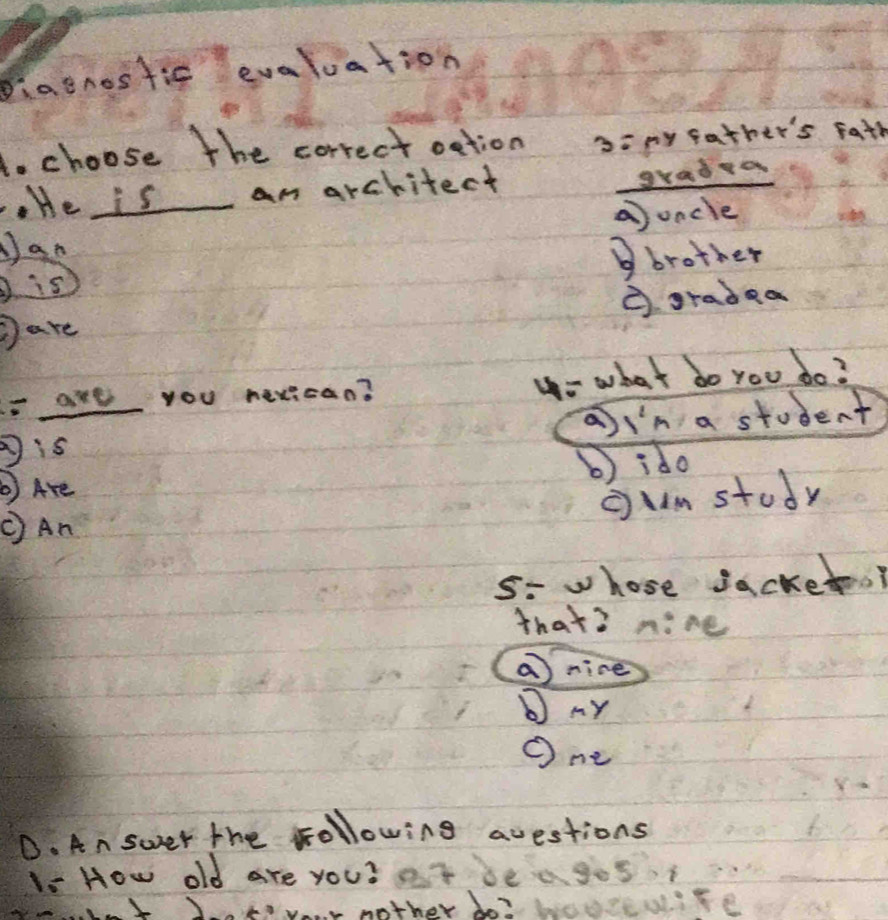 Diagnostic evaluation
1. choose the correct oation
. He is an architect
a) an
b) is
c) are
.- are you mexican?
a) is
b) Are
c) An
3.- my father's fath
gradpa
a) uncle
b) brother
c) gradpa
4.- what do you do?
a) i'm a student
b) i do
c) study
5.- whose jacket i
that? mine
a) mine
b) my
c) me
D. Answer the Following questions
1.- How old are you? 27 de agos
your mother do? housewife